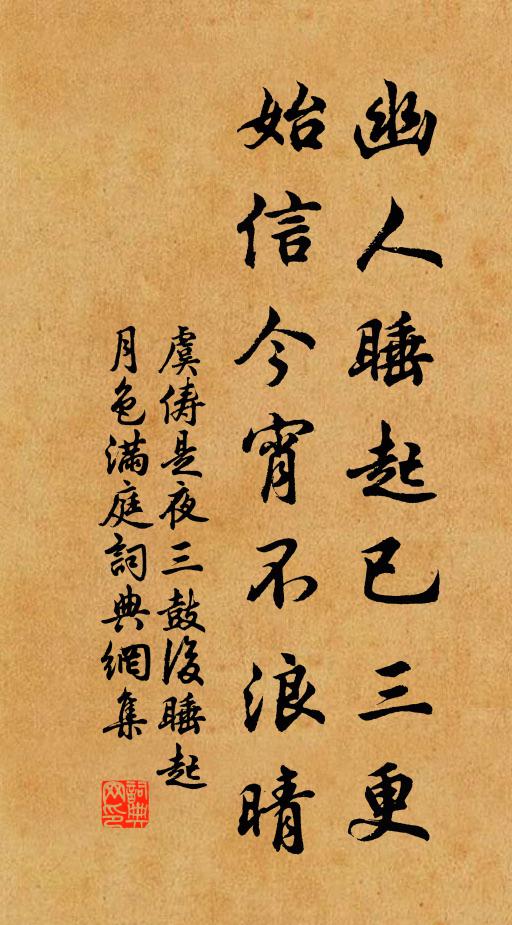 幽人睡起已三更
始信今宵不浪晴
虞俦是夜三鼓後睡起
月色滿庭詞典網集
詞典网印